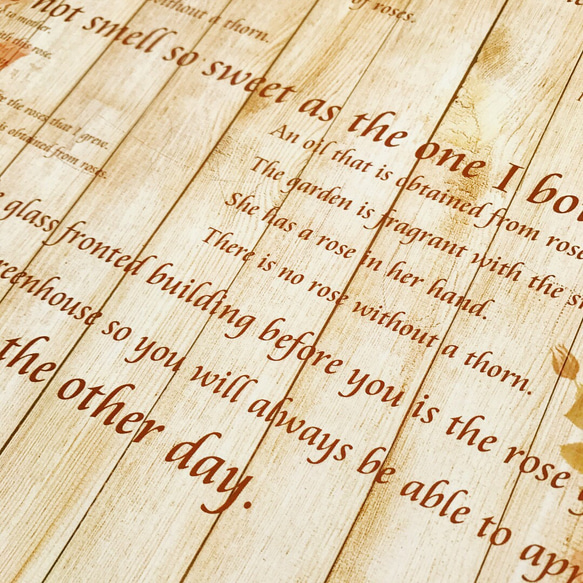 of roses.
without a thorn.
mother.
rose.
not smell so sweet as the one I
by the roses that I grew.
is obtained from roses.
An oil that is obtained from rose
The garden is fragrant with the
She has a rose in her hand.
There is no rose without a thorn.
glass fronted building before you is the rose
so you will always be able to
the other day.